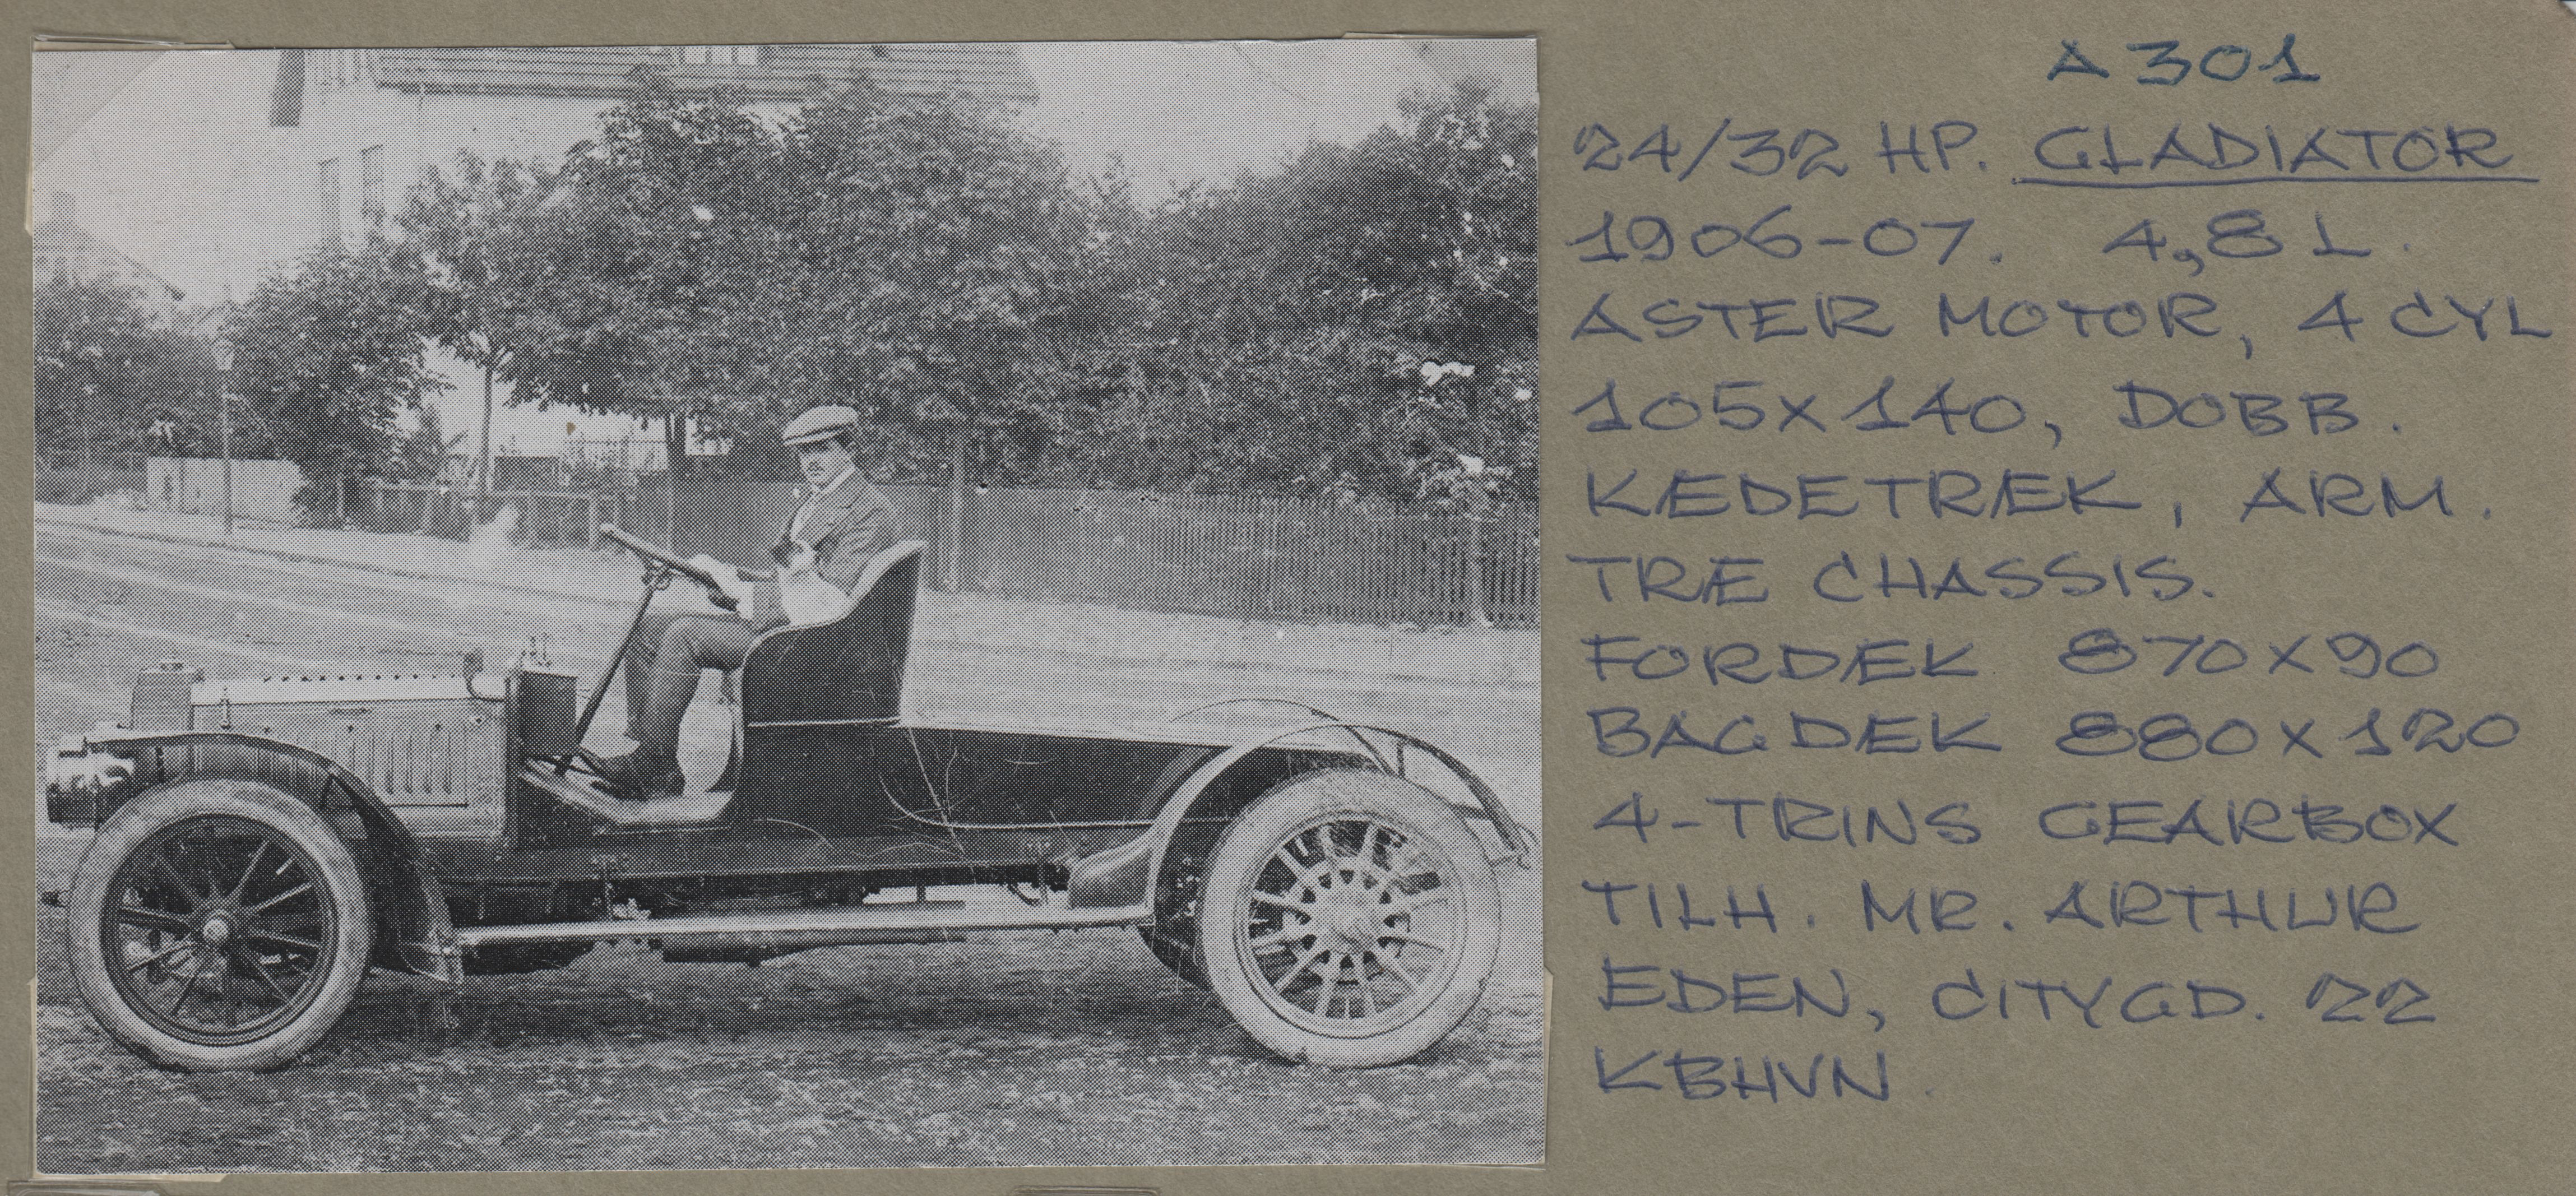 A 301
24/32 HP. GLADIATOR
1906-07. 4,8 L.
ASTER MOTOR, 4 CYL
105X140, DOBB.
KÆDETRÆK, ARM.
TRÆ CHASSIS.
FORDÆK 870X90
BAGDÆK 880X120
4-TRINS GEARBOX
TILH. MR. ARTHUR
EDEN, CITYGD. 22
KBHVN.